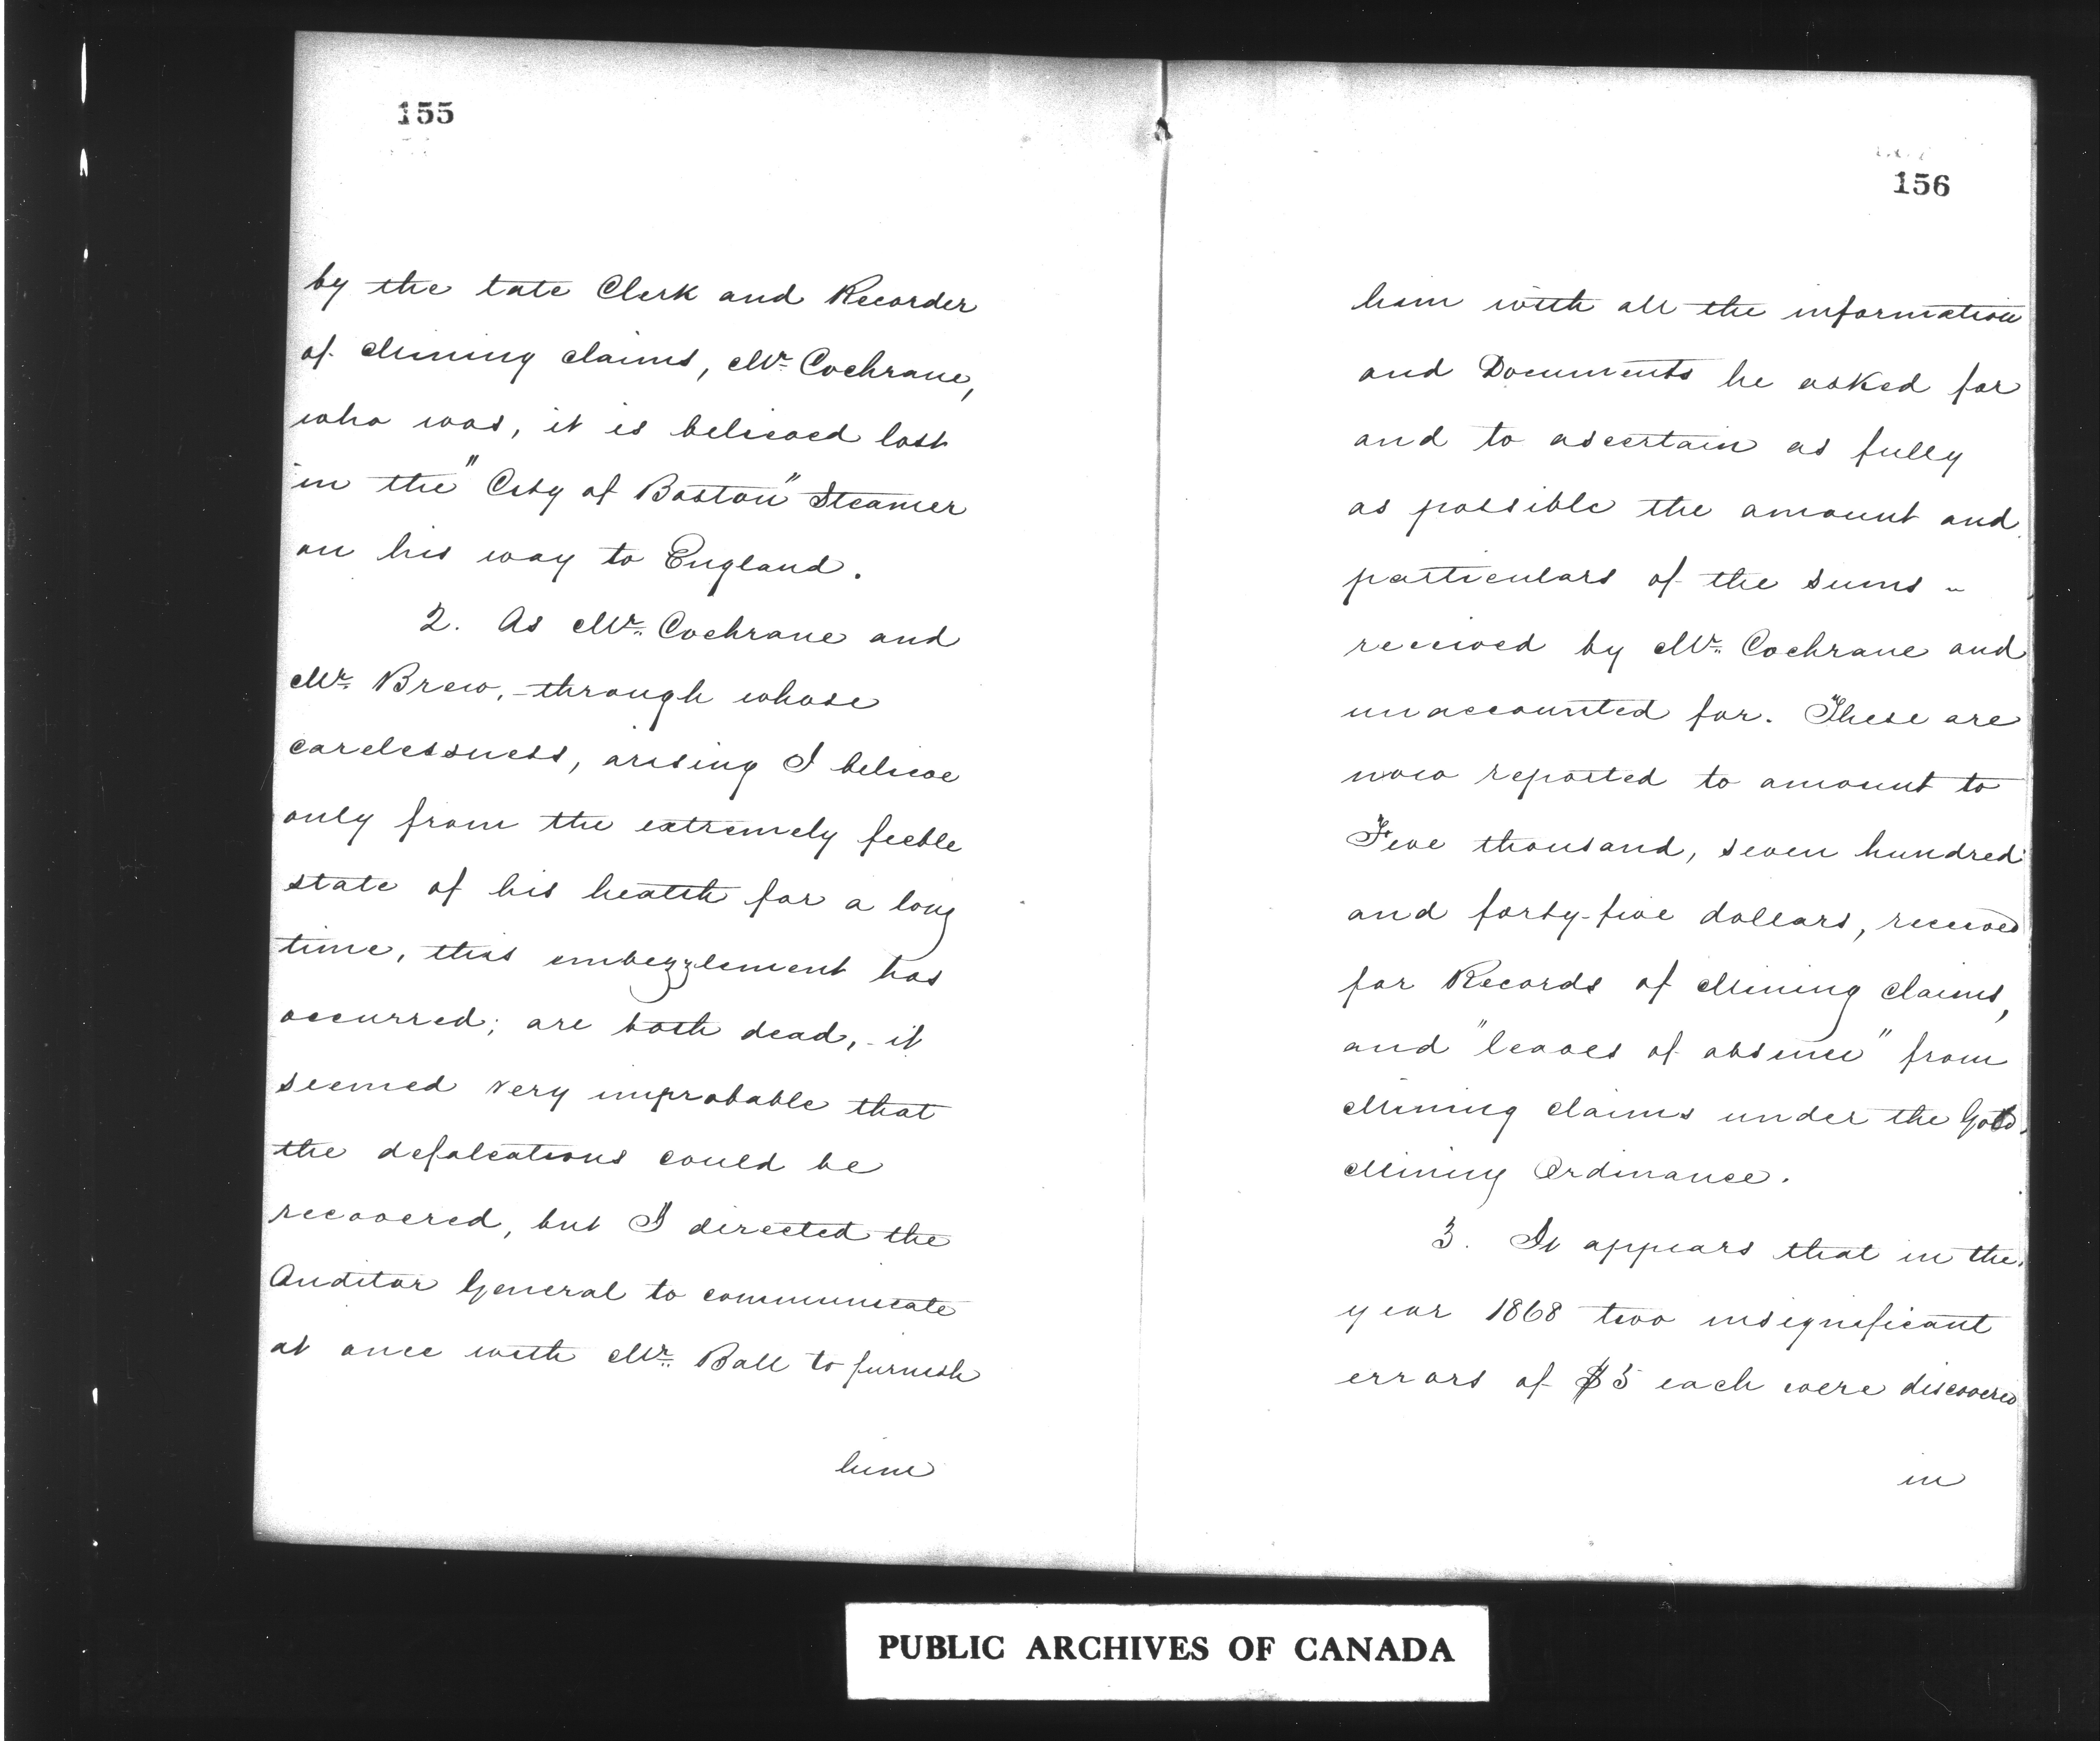 155
by the late Clerk and Recorder
of Mining claims, Mr. Cochrane,
who was, it is believed lost
in the "City of Boston" Steamer
on his way to England.
2. As Mr. Cochrane and
Mr. Brew, - through whose
carelessness, arising I believe
only from the extremely feeble
state of his health for a long
time, this embezzlement has
occurred; are both dead, - it
seemed very improbable that
the defalcations could be
recovered, but I directed the
Auditor General to communicate
at once with Mr. Ball to furnish
him
156
him with all the information
and Documents he asked for
and to ascertain as fully
as possible the amount and
particulars of the sums -
received by Mr. Cochrane and
unaccounted for. These are
now reported to amount to
Five thousand, seven hundred
and forty-five dollars, received
for Records of Mining claims,
and "leaves of absence" from
Mining claims under the Gold
Mining Ordinance.
3. It appears that in the
year 1868 two insignificant
errors of $5 each were discovered
in
PUBLIC ARCHIVES OF CANADA